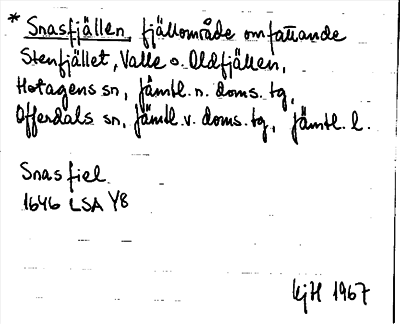 * Snasfjällen, fjällområde omfattande
Stenfjället, Valle o. Oldfjällen,
Hotagens sn, Jämtl. n. doms. tg,
Offerdals sn, Jämtl. v. doms. tg, Jämtl. l.
Snasfiel
1646 LSA Y8
KjH 1967